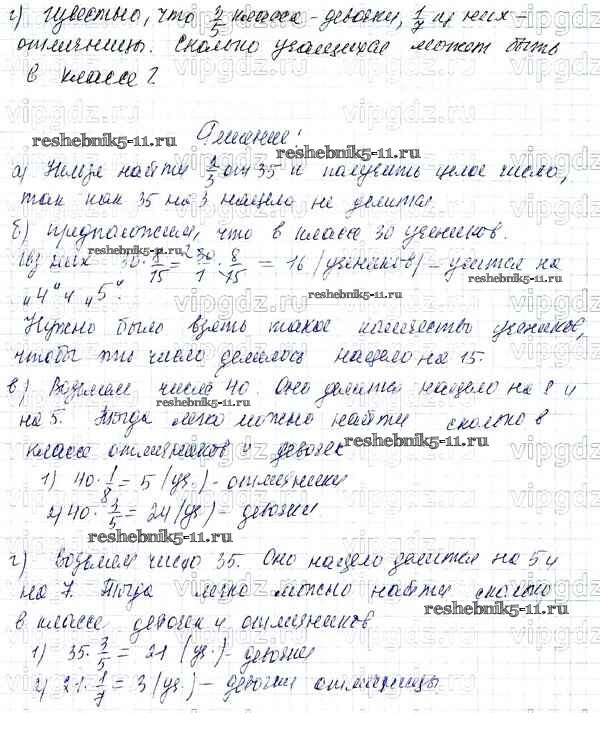 г) Известно, что 3/5 класса - девочки, 1/7 из них -
отличницы. Сколько учащихся может быть
в классе?
Решение:
а) Нельзя найти от 35 и получить целое число,
так как 35 на 3 нацело не делится.
б) Предположим, что в классе 30 учеников.
Из них 30 · 8/15 = 30/1 · 8/15 = 16 (учеников) - учится на
„4“ и „5“.
Нужно было взять такое количество учеников,
чтобы это число делилось нацело на 15.
в) Возьмём число 40. Оно делится нацело на 8 и
на 5. Тогда легко можно найти сколько в
классе отличников и девочек
1) 40 · 1/8 = 5 (уч.) - отличники
2) 40 · 3/5 = 24 (уч.) - девочки
г) Возьмём число 35. Оно нацело делится на 5 и
на 7. Тогда легко можно найти сколько
в классе девочек и отличников
1) 35 · 3/5 = 21 (уч.) - девочки
2) 21 · 1/7 = 3 (уч.) - девочки отличницы.
reshebnik5-11.ru
vipgdz.ru